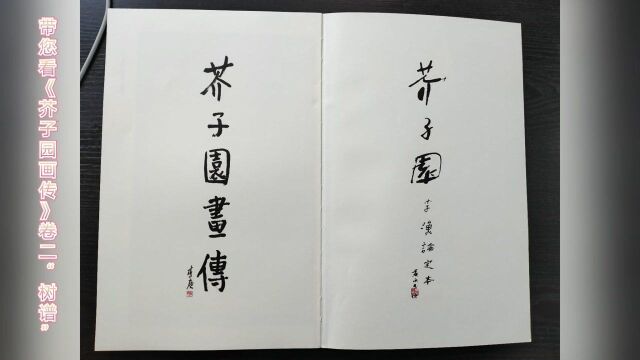 带您看《芥子园画传》卷二“树谱”
芥子園畫傳
芥子園
李漁論定本